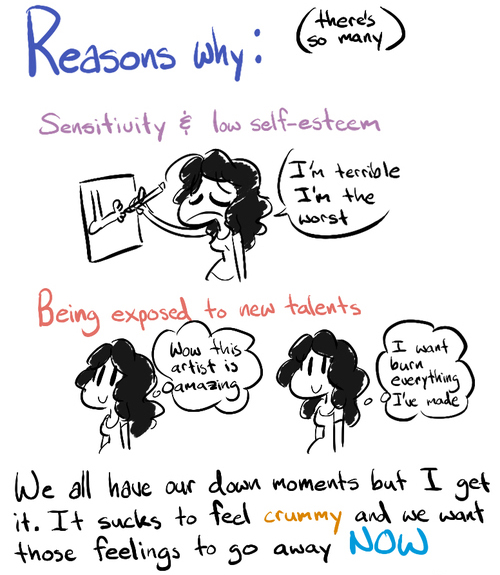 Reasons why:
(there's
so many)
Sensitivity & low self-esteem
I'm terrible
I'm the
worst
Being exposed to new talents
Wow this
artist is
amazing
I want
burn
everything
I've made
We all have our down moments but I get
it. It sucks to feel crummy and we want
those feelings to go away NOW